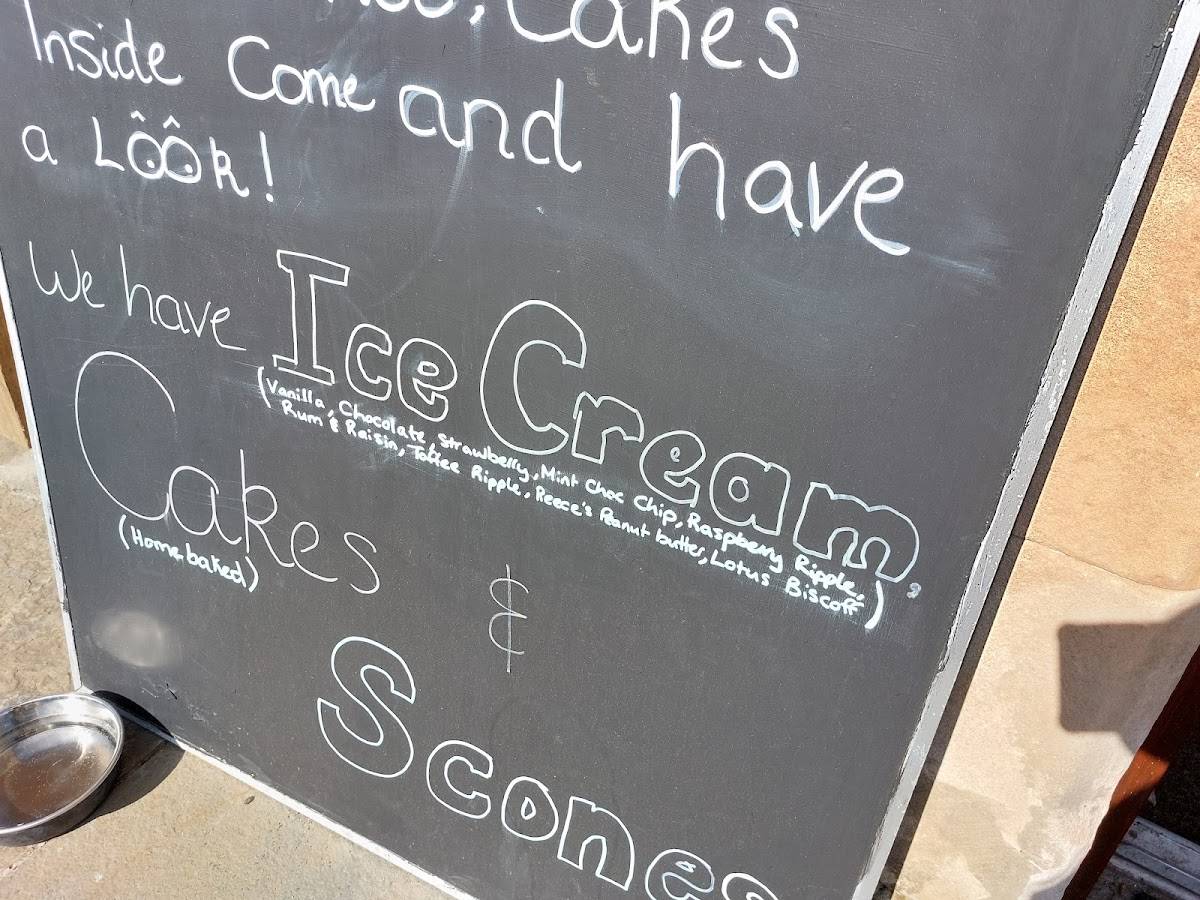 Cakes
Inside Come and have
a LôôK!
We have Ice Cream,
(Vanilla, Chocolate, Strawberry, Mint Choc Chip, Raspberry Ripple,
Rum & Raisin, Toffee Ripple, Reece's Peanut butter, Lotus Biscoff)
Cakes
(Home baked)
&
Scones